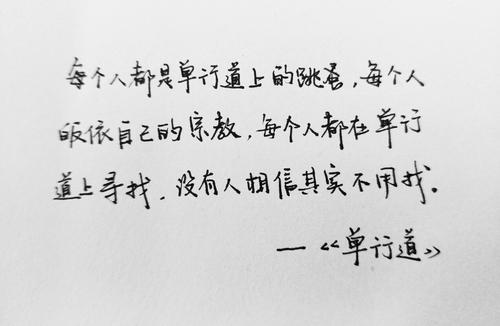 每个人都是单行道上的跳蚤，每个人
皈依自己的宗教，每个人都在单行
道上寻找，没有人相信其实不用找。
—《单行道》